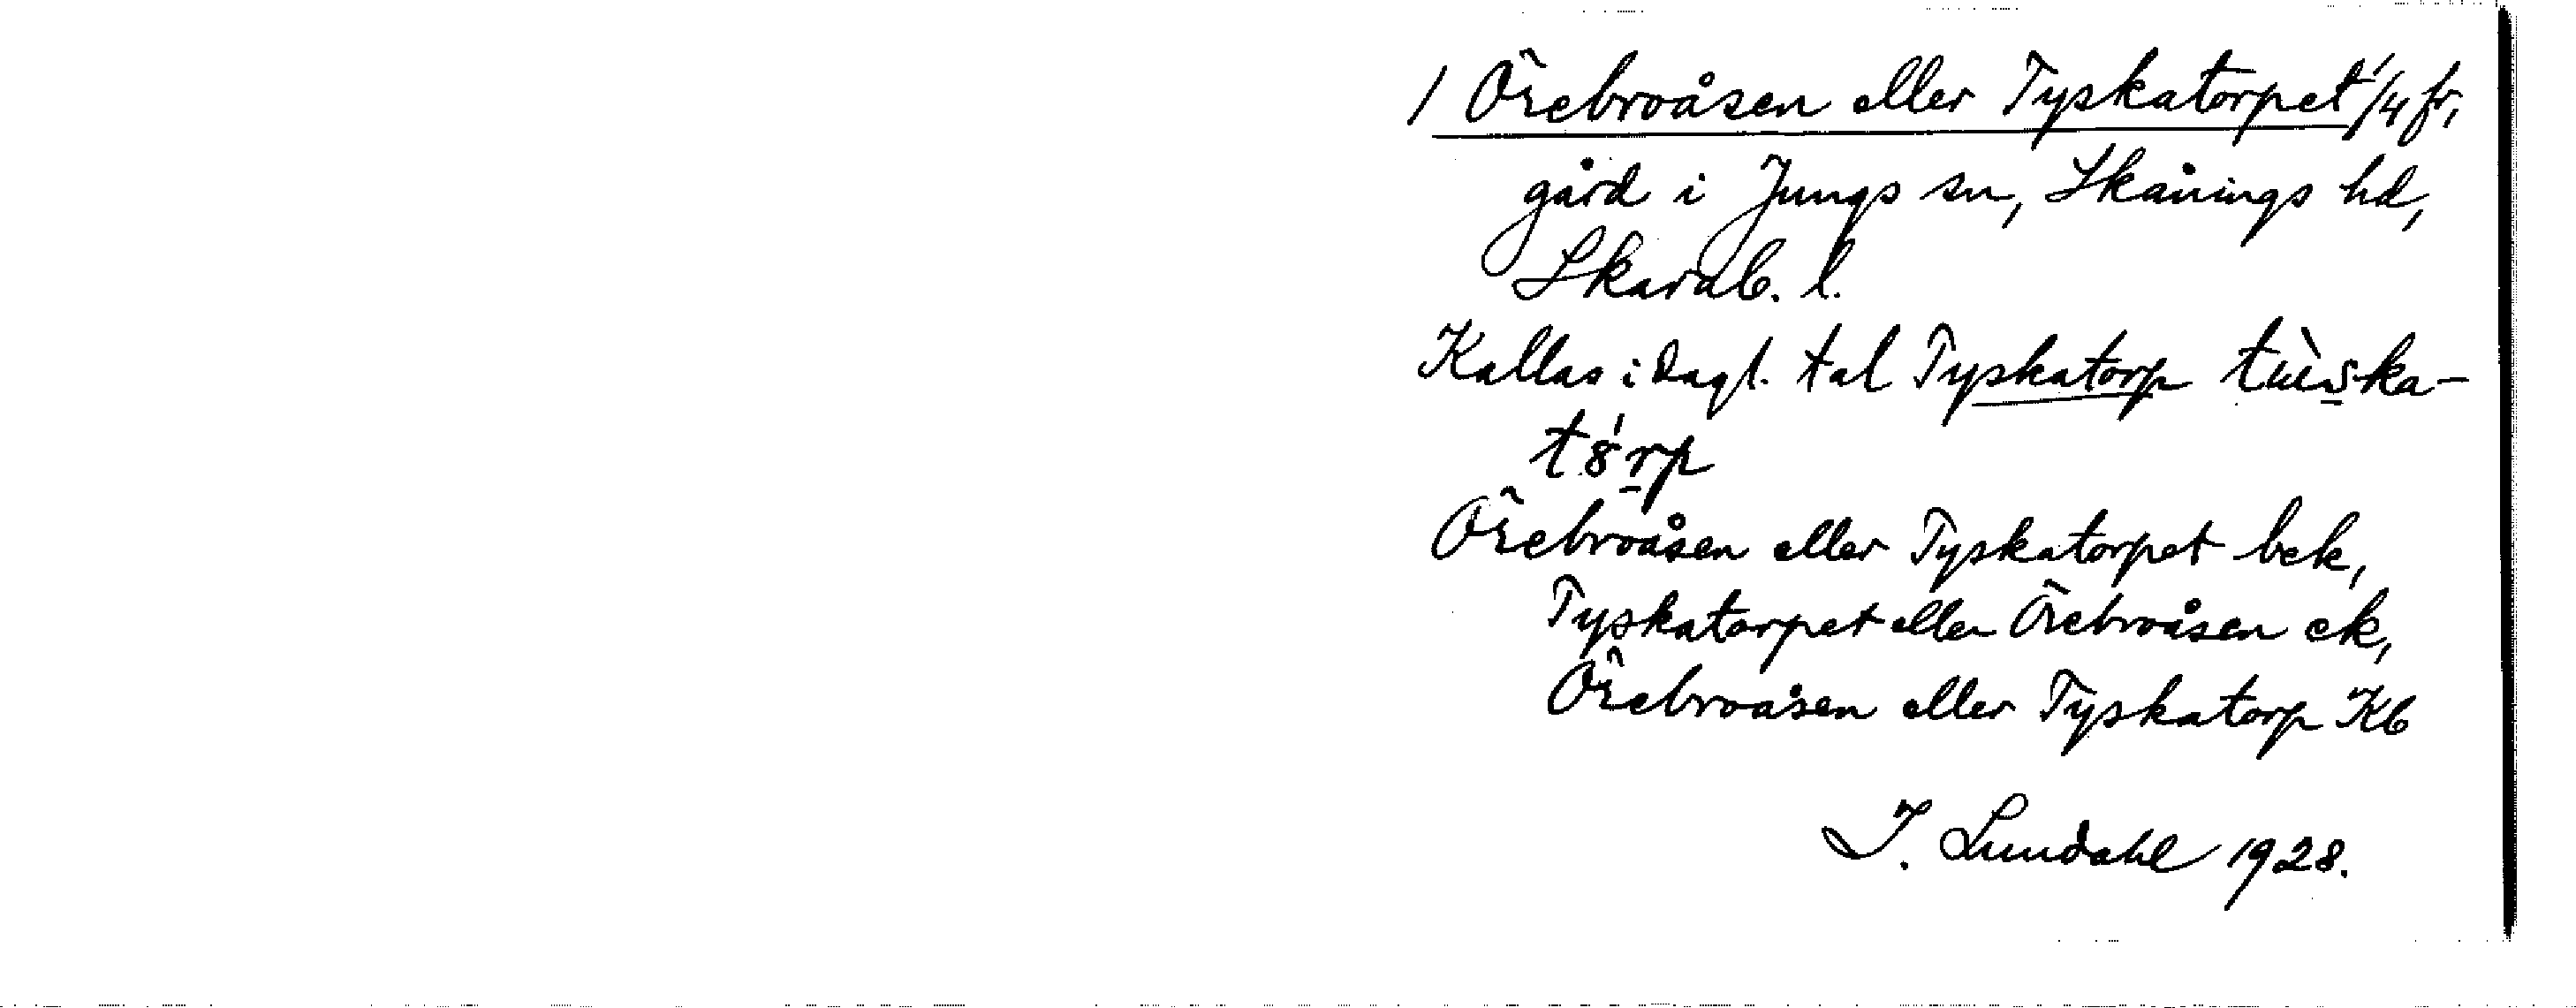 1 Örebroåsen eller Tyskatorpet 1/4 fr,
gård i Jungs sn, Skånings hd,
Skarab. l.
Kallas i dagl. tal Tyskatorp tùska-
tórp
Örebroåsen eller Tyskatorpet bek,
Tyskatorpet eller Örebroåsen ek,
Örebroåsen eller Tyskatorp Kb
I. Lundahl 1928.